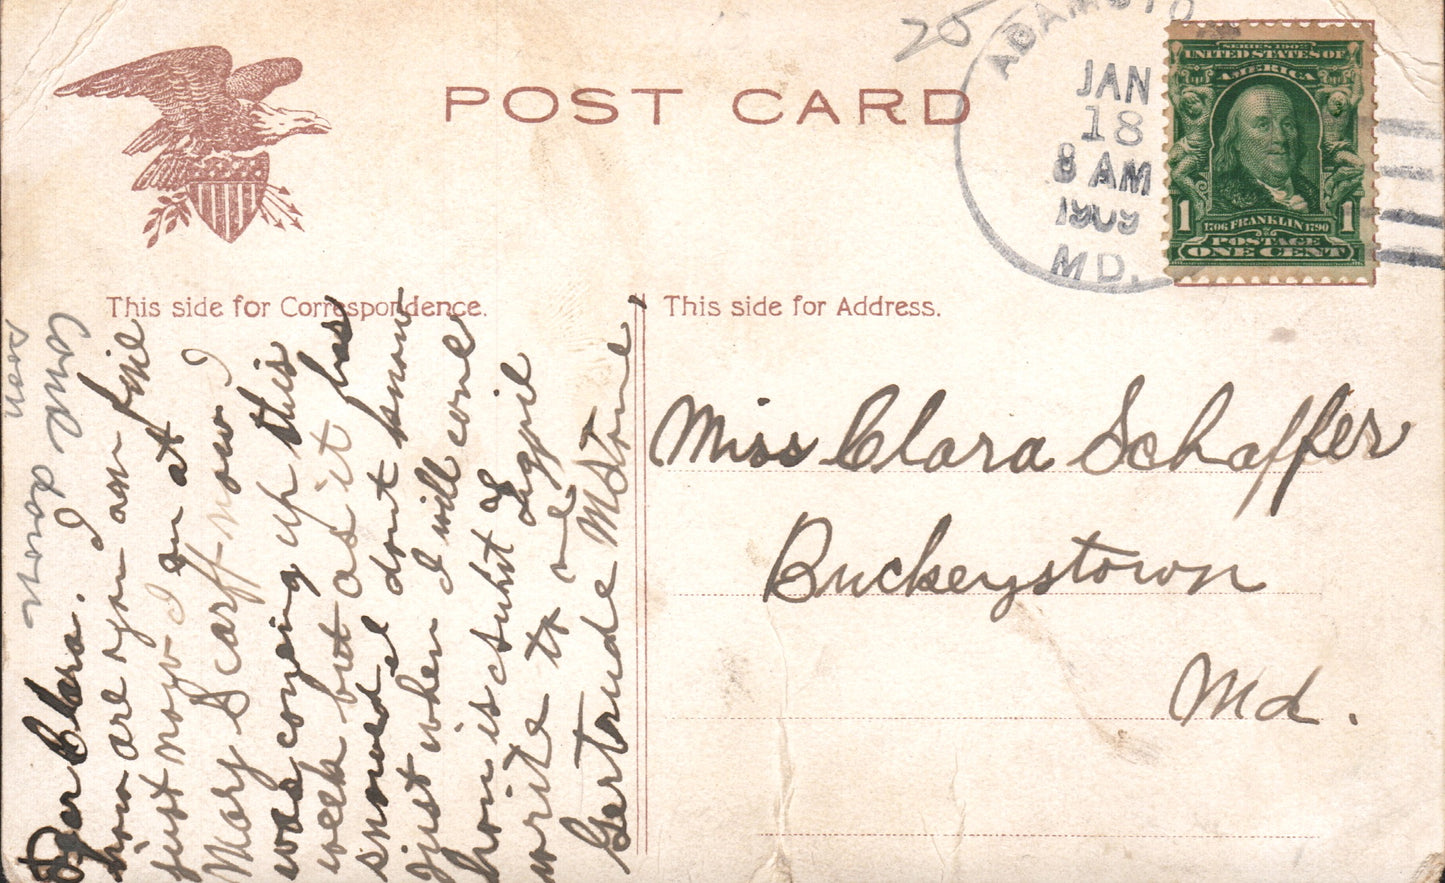 POST CARD
20
ADAMSTO
JAN
18
8 AM
1909
MD.
SERIES 1902
UNITED STATES OF
AMERICA
1 1706 FRANKLIN 1790 1
POSTAGE
ONE CENT
This side for Correspondence.
This side for Address.
Come down
soon
Dear Clara.
how are you I am fine
just now I am at
Mary Scarff now I
was comeing up this
week but as it has
snowed I dont know
just when I will come
how is
write to me
Gertrude M Stone
Miss Clara Schaffer
Buckeystown
Md.